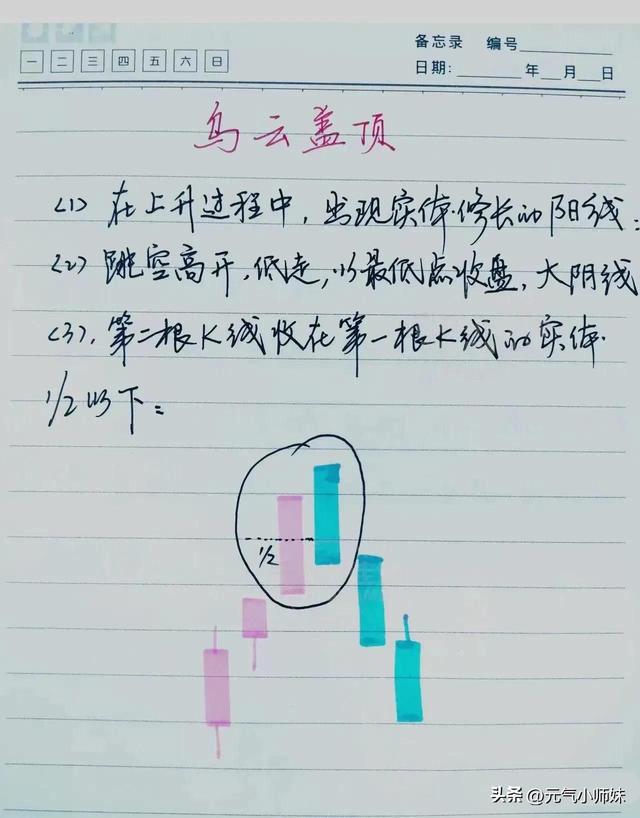 备忘录 编号
一 二 三 四 五 六 日
日期: 年 月 日
乌云盖顶
(1) 在上升过程中, 出现实体修长的阳线;
(2) 跳空高开, 低走, 以最低点收盘, 大阴线
(3), 第二根K线收在第一根K线的实体
1/2以下:
1/2
头条 @元气小师妹